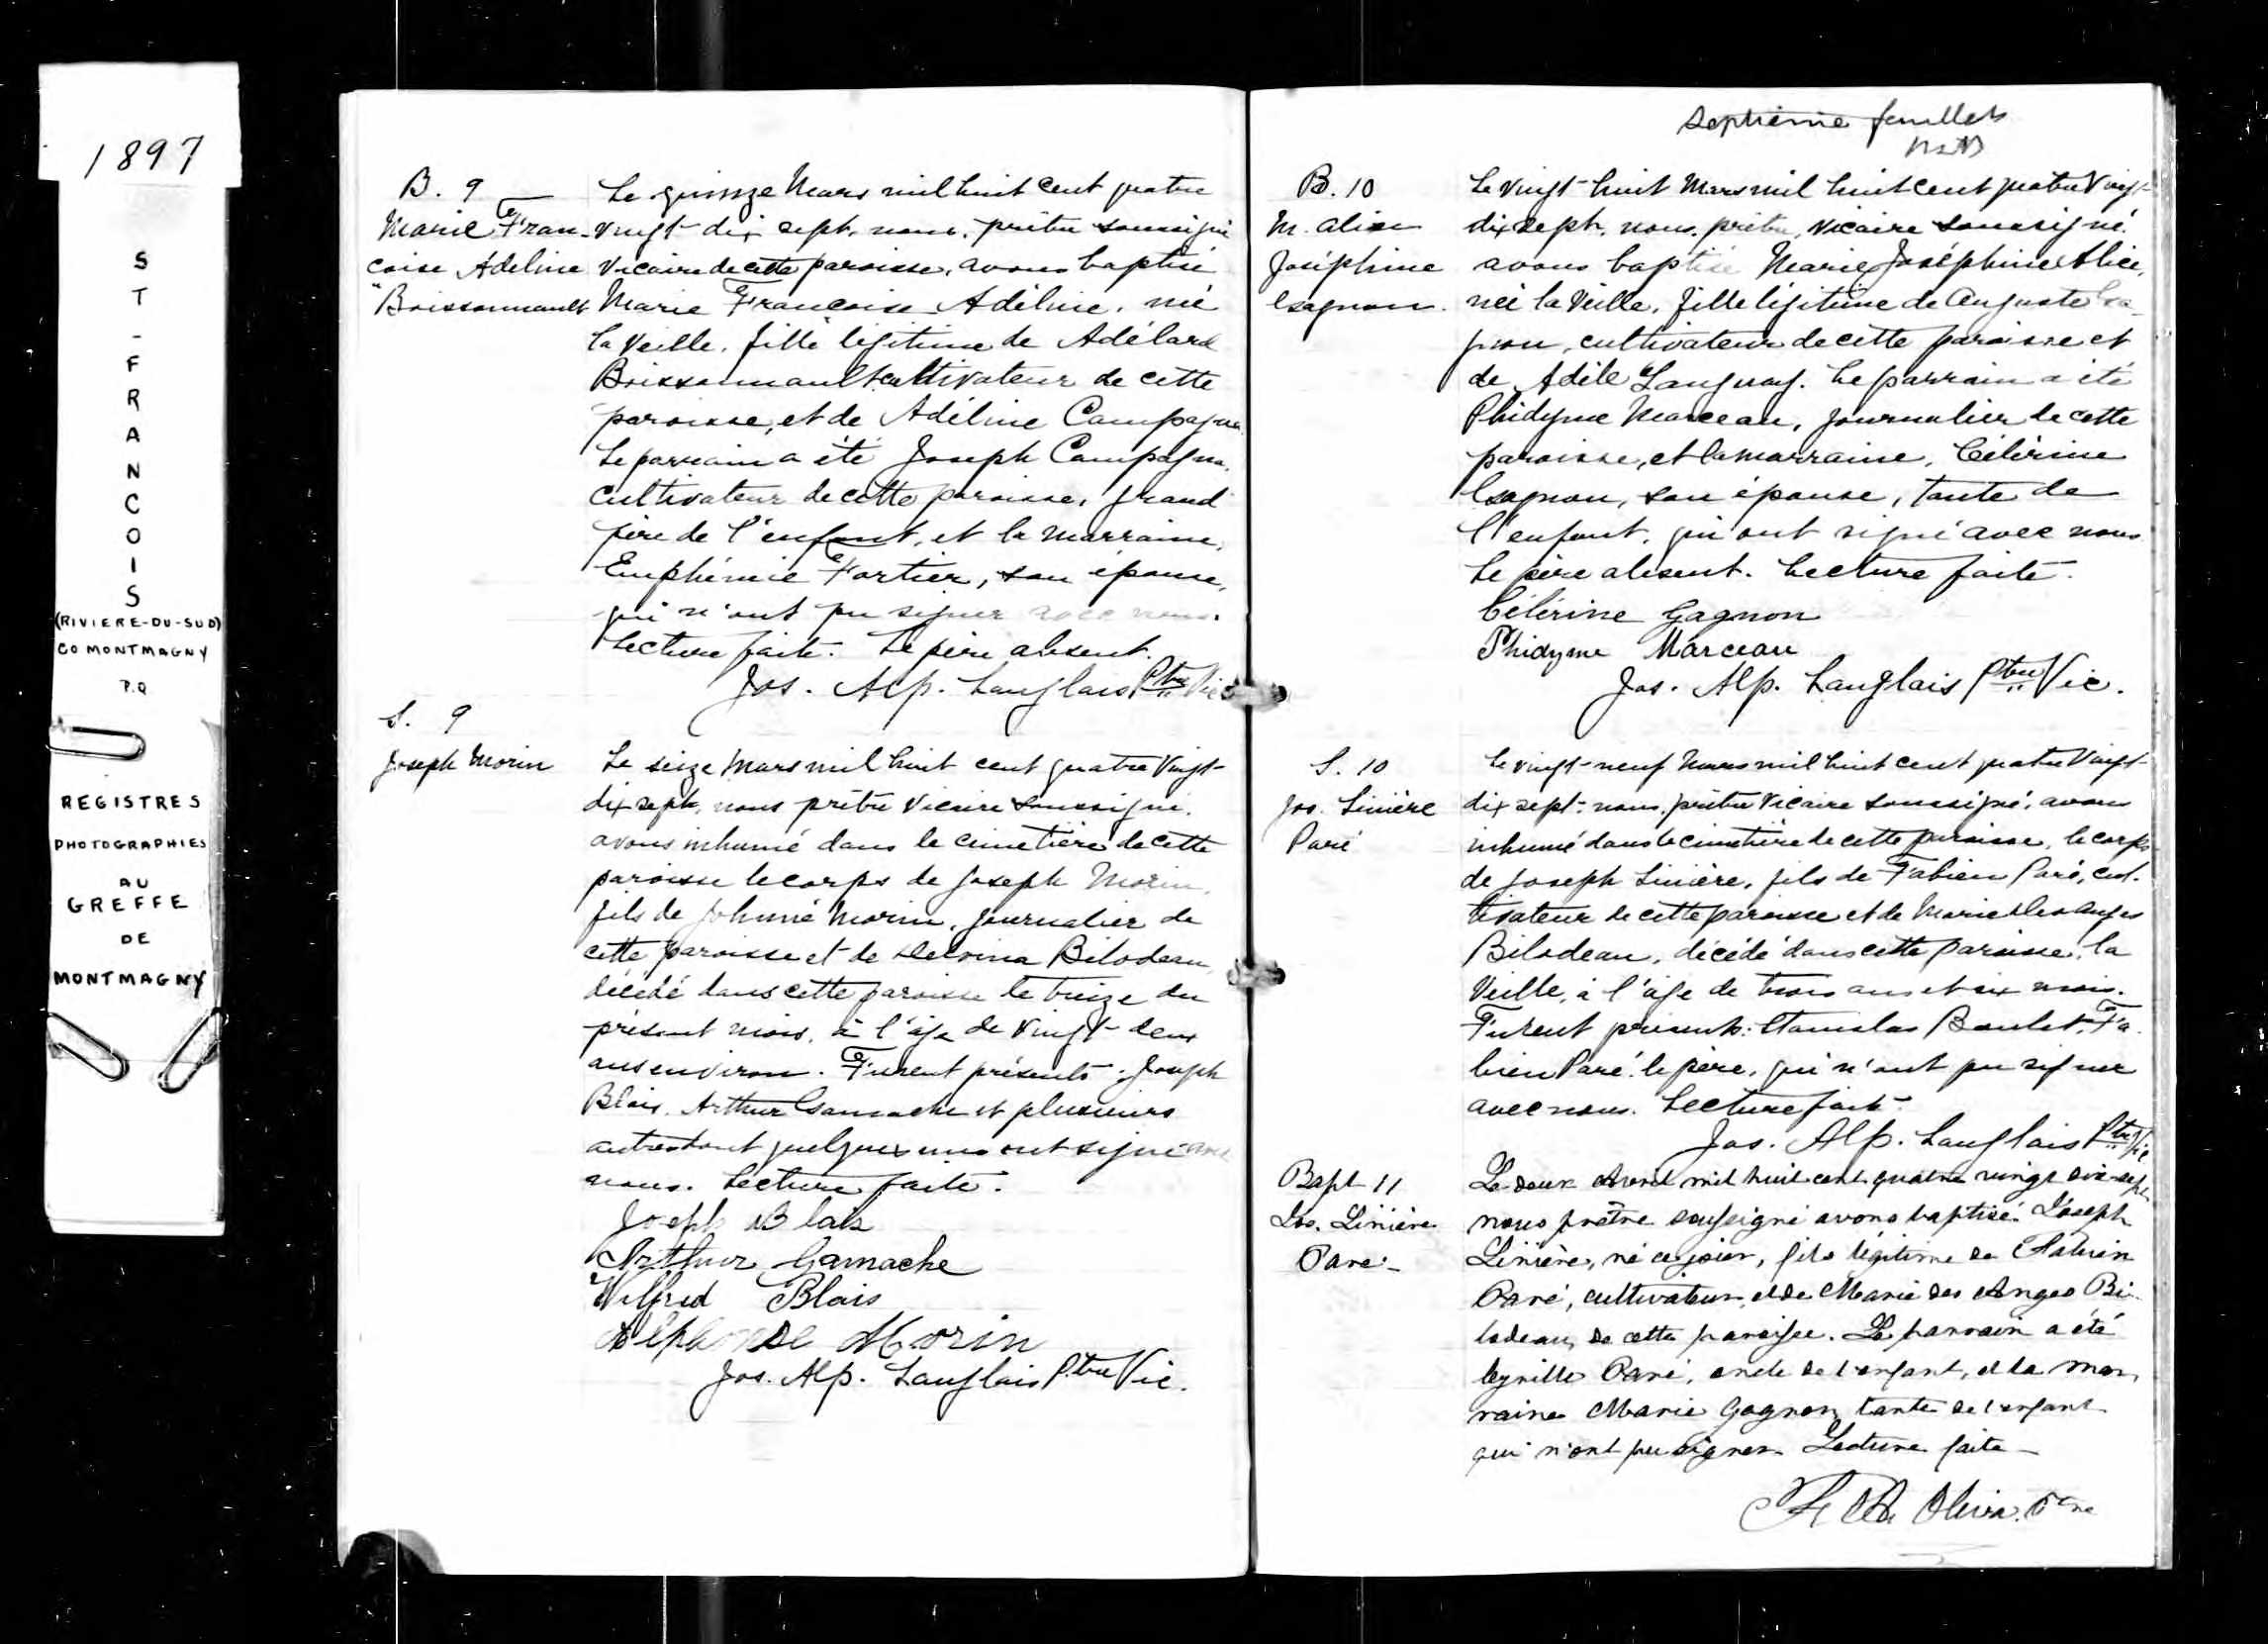 1897
ST-FRANCOIS
(RIVIERE-DU-SUD)
CO MONTMAGNY
P.Q
REGISTRES
PHOTOGRAPHIES
AU
GREFFE
DE
MONTMAGNY
B. 9
Marie Fran-
coise Adeline
Boissonnault
Le quinze Mars mil huit cent quatre
vingt-dix sept, nous, prêtre soussigné
Vicaire de cette paroisse, avons baptisé
Marie Francoise Adéline, née
la Veille, fille légitime de Adélard
Boissonnault cultivateur de cette
paroisse, et de Adéline Campagna.
Le parrain a été Joseph Campagna,
cultivateur de cette paroisse, grand
père de l'enfant, et la marraine,
Euphémie Fortier, son épouse,
qui n'ont pu signer avec nous.
Lecture faite. Le père absent.
Jos. Alp. Langlais Ptre Vic
S. 9
Joseph Morin
Le seize Mars mil huit cent quatre Vingt-
dix sept, nous prêtre Vicaire soussigné,
avons inhumé dans le cimetière de cette
paroisse le corps de Joseph Morin,
fils de Johnné Morin, journalier de
cette paroisse et de Delvina Bilodeau,
décédé dans cette paroisse le treize du
présent mois, à l'âge de Vingt-deux
ans environ. Furent présents: Joseph
Blais, Arthur Gamache et plusieurs
autres dont quelques uns ont signé avec
nous. Lecture faite.
Joseph Blais
Arthur Gamache
Wilfred Blais
Alphonse Morin
Jos. Alp. Langlais Ptre Vic.
Septième feuillet
B. 10
M. Alice
Joséphine
Gagnon.
Le vingt-huit Mars mil huit cent quatre Vingt-
dix sept, nous, prêtre, Vicaire soussigné,
avons baptisé Marie Joséphine Alice,
née la Veille, fille légitime de Auguste Ga-
gnon, cultivateur de cette paroisse et
de Adèle Languay. Le parrain a été
Phidyme Marceau, journalier de cette
paroisse, et la marraine, Célérine
Gagnon, son épouse, tante de
l'enfant, qui ont signé avec nous
Le père absent. Lecture faite.
Célérine Gagnon
Phidyme Marceau
Jos. Alp. Langlais Ptre Vic.
S. 10
Jos. Linière
Paré
Le vingt-neuf Mars mil huit cent quatre Vingt-
dix sept, nous, prêtre Vicaire soussigné, avons
inhumé dans le cimetière de cette paroisse, le corps
de Joseph Linière, fils de Fabien Paré, cul-
tivateur de cette paroisse et de Marie des Anges
Bilodeau, décédé dans cette paroisse, la
Veille, à l'âge de trois ans et six mois.
Furent présents: Stanislas Boulet, Fa-
bien Paré, le père, qui n'ont pu signer
avec nous. Lecture faite.
Jos. Alp. Langlais Ptre Vic
Bapt 11
Jos. Linière
Paré
Le deux Avril mil huit cent quatre vingt dix-sept
nous prêtre soussigné avons baptisé Joseph
Linière, né ce jour, fils légitime de Fabien
Paré, cultivateur, et de Marie des Anges Bi-
lodeau, de cette paroisse. Le parrain a été
Cyrille Paré, oncle de l'enfant, et la mar-
raine Marie Gagnon, tante de l'enfant
qui n'ont pu signer. Lecture faite
Oliva, Ptre